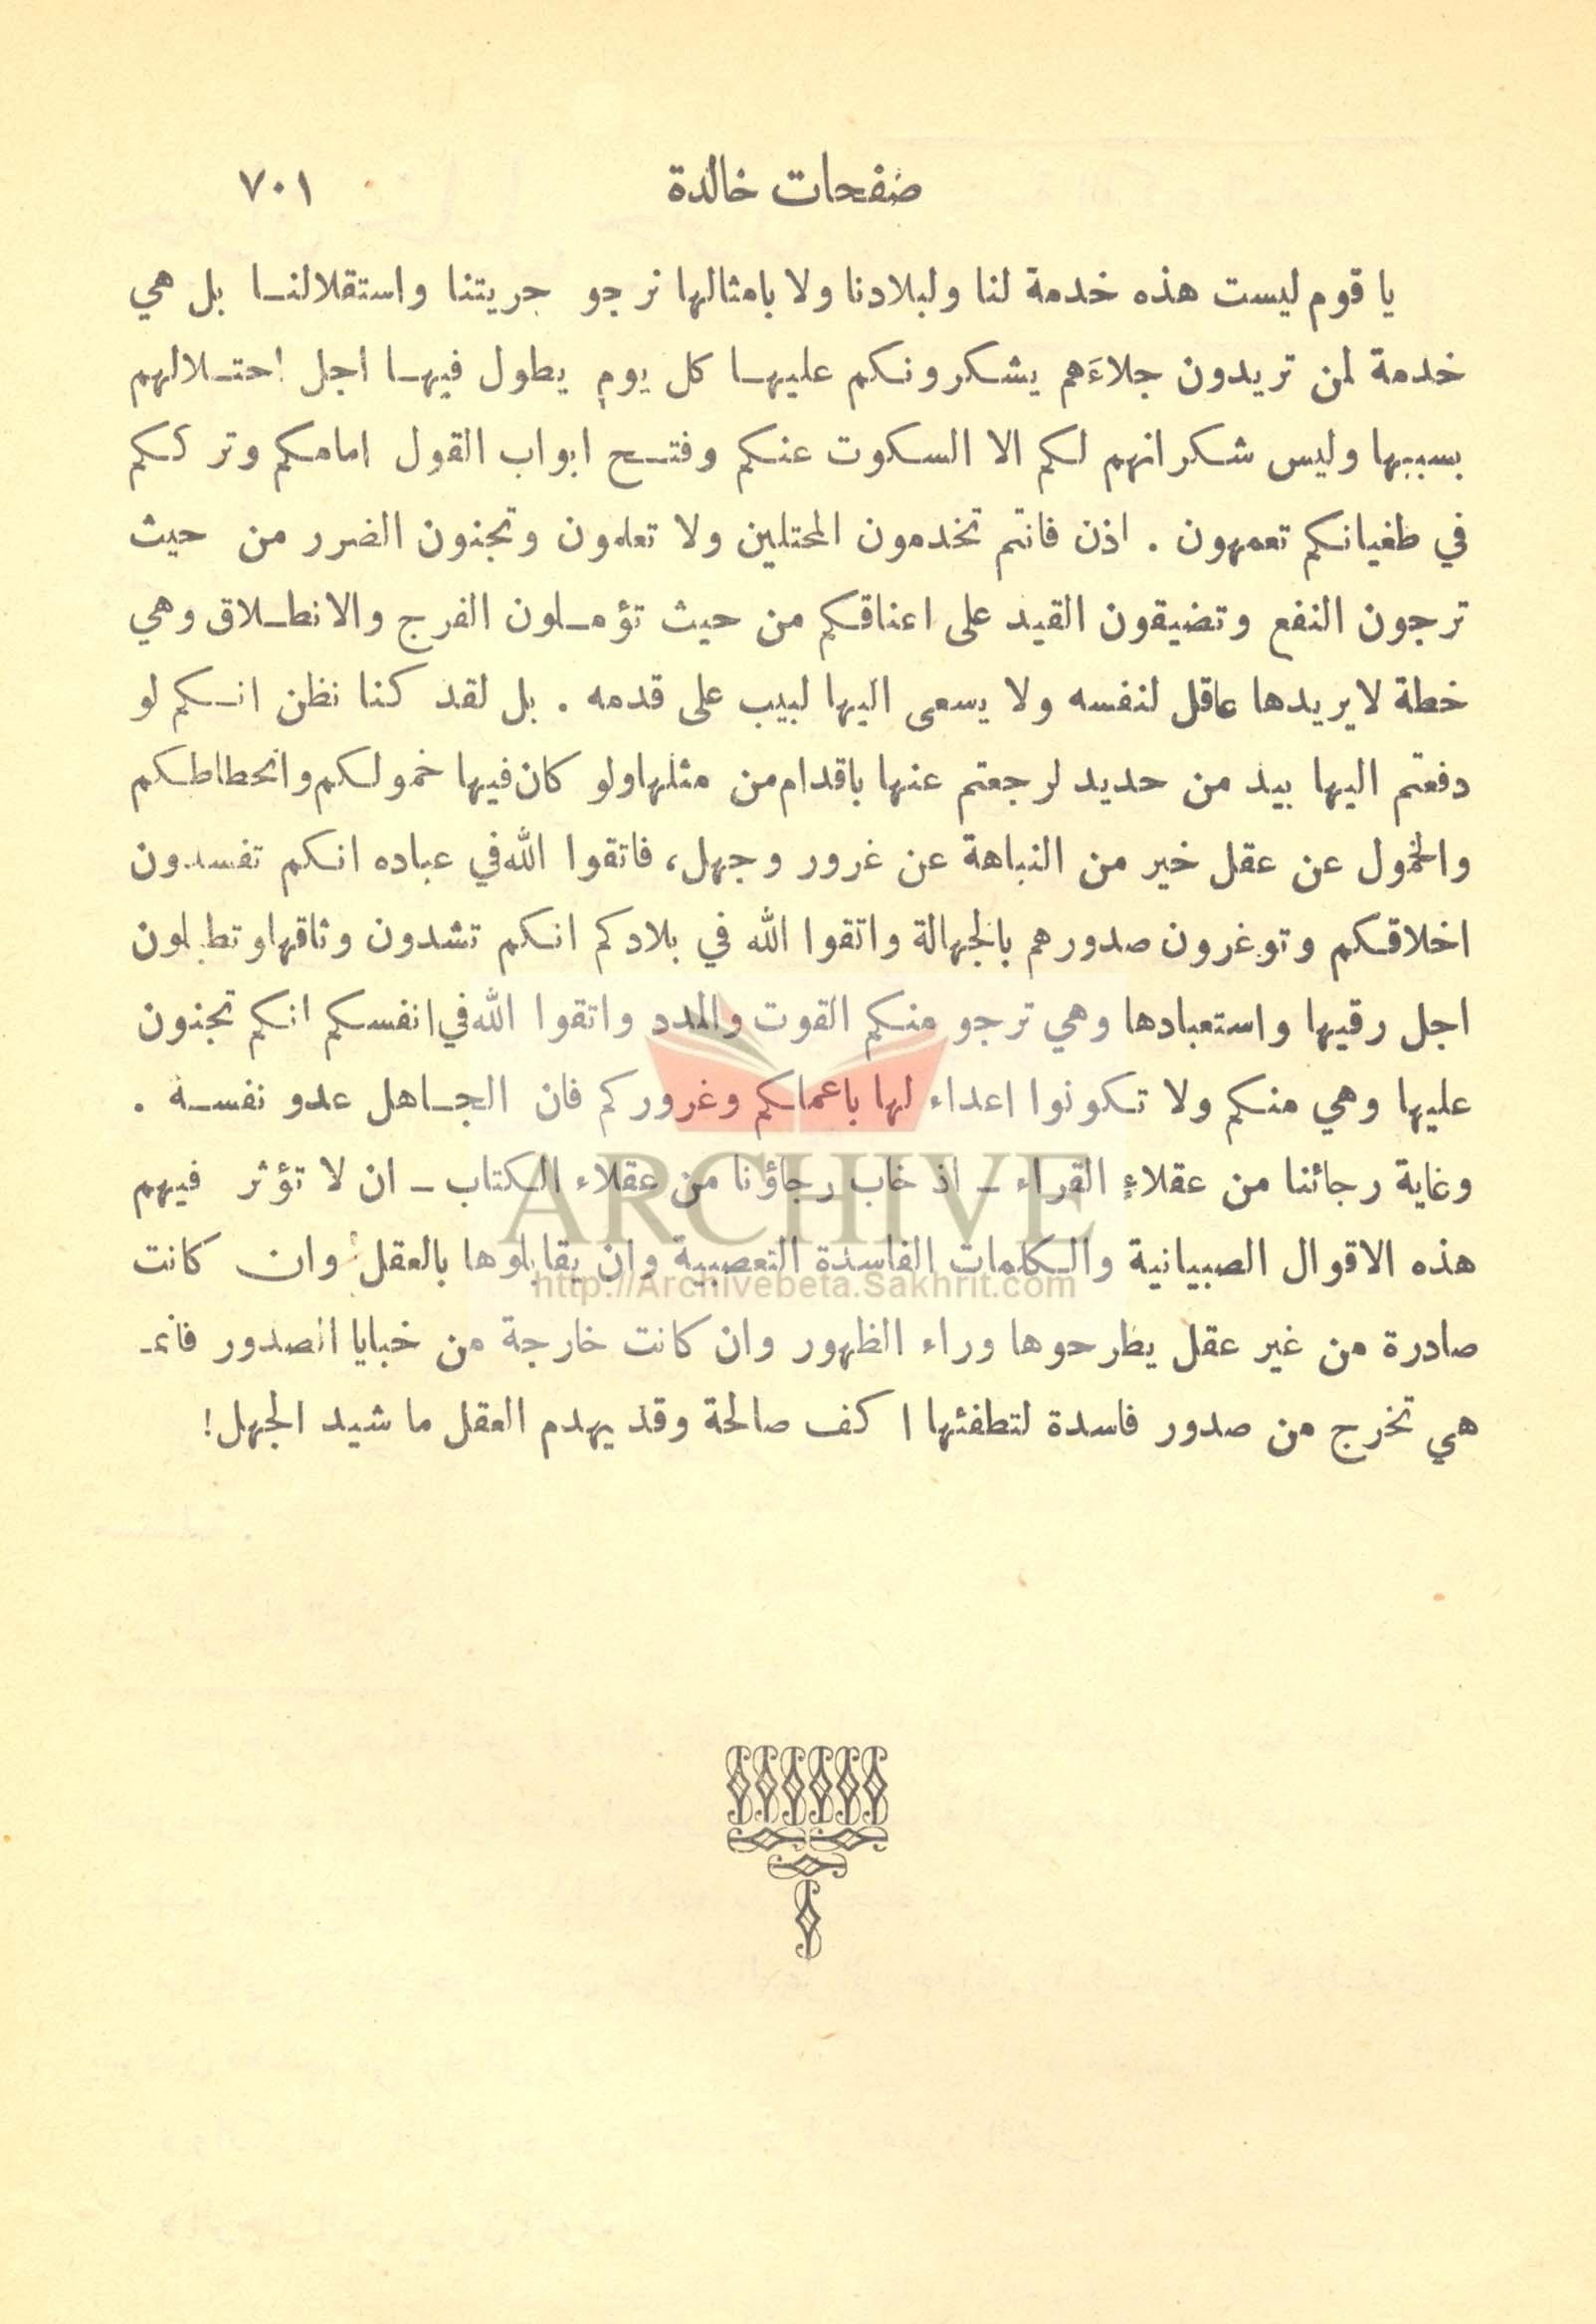 صفحات خالدة ٧٠١
يا قوم ليست هذه خدمة لنا ولبلادنا ولا بامثالها نرجو حريتنا واستقلالنا بل هي
خدمة لمن تريدون جلاءَهم يشكرونكم عليها كل يوم يطول فيها اجل احتلالهم
بسببها وليس شكرانهم لكم الا السكوت عنكم وفتح ابواب القول امامكم وترككم
في طغيانكم تعمهون . اذن فانتم تخدمون المحتلين ولا تعلمون وتجنون الضرر من حيث
ترجون النفع وتضيقون القيد على اعناقكم من حيث تؤملون الفرج والانطلاق وهي
خطة لايريدها عاقل لنفسه ولا يسعى اليها لبيب على قدمه . بل لقد كنا نظن انكم لو
دفعتم اليها بيد من حديد لرجعتم عنها باقدام من مثلها ولو كان فيها خمولكم وانحطاطكم
والخمول عن عقل خير من النباهة عن غرور وجهل، فاتقوا الله في عباده انكم تفسدون
اخلاقكم وتوغرون صدورهم بالجهالة واتقوا الله في بلادكم انكم تشدون وثاقها وتطيلون
اجل رقيها واستعبادها وهي ترجو منكم القوت والمدد واتقوا الله في انفسكم انكم تجنون
عليها وهي منكم ولا تكونوا اعداء لها باعمالكم وغروركم فان الجاهل عدو نفسه .
وغاية رجائنا من عقلاءِ القراء – اذ خاب رجاؤنا من عقلاء الكتاب – ان لا تؤثر فيهم
هذه الاقوال الصبيانية والكلمات الفاسدة التعصبية وان يقابلوها بالعقل وان كانت
صادرة من غير عقل يطرحوها وراء الظهور وان كانت خارجة من خبايا الصدور فانما
هي تخرج من صدور فاسدة لتطفئها اكف صالحة وقد يهدم العقل ما شيد الجهل!
ARCHIVE
http://Archivebeta.Sakhrit.com